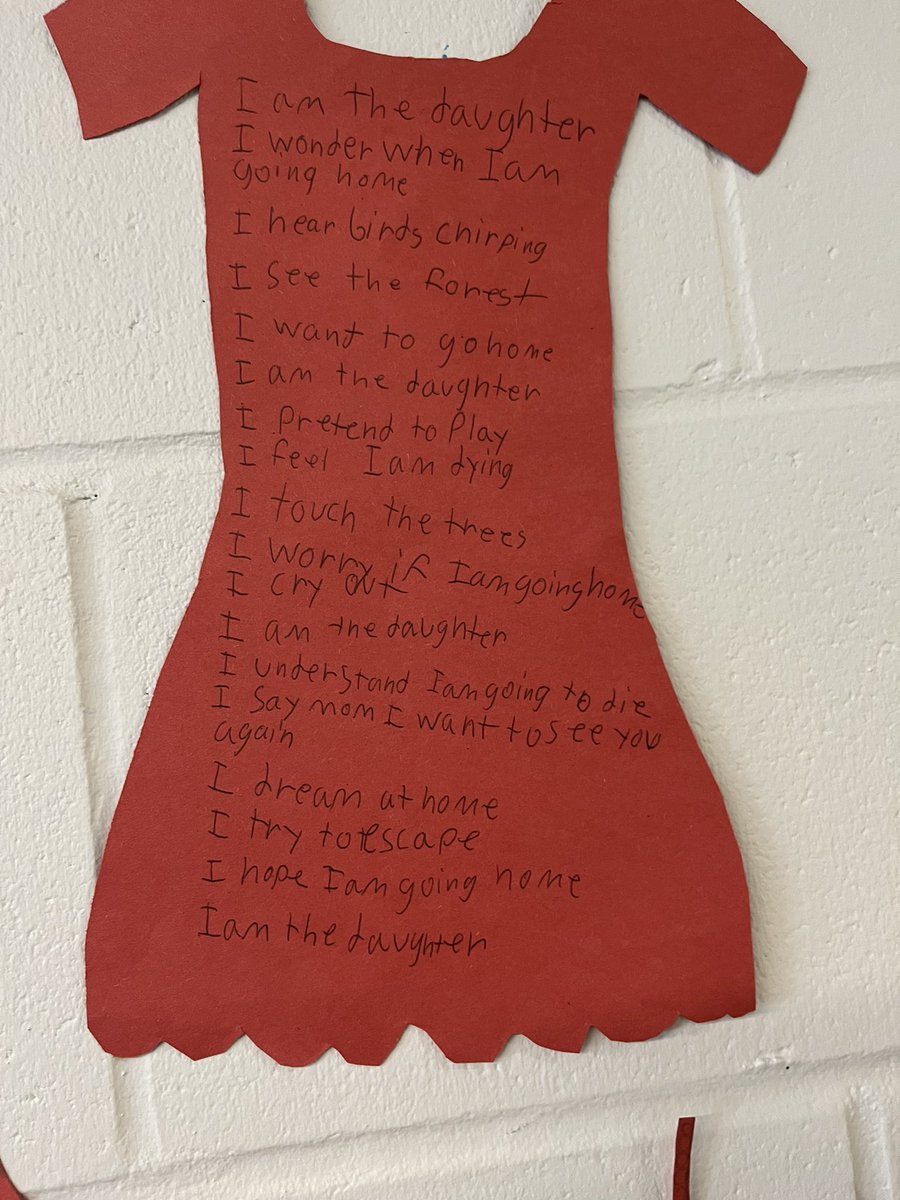 I am the daughter
I wonder when I am
going home
I hear birds chirping
I see the forest
I want to go home
I am the daughter
I pretend to play
I feel I am dying
I touch the trees
I worry if I am going home
I cry out
I am the daughter
I understand I am going to die
I say mom I want to see you
again
I dream at home
I try to escape
I hope I am going home
I am the daughter